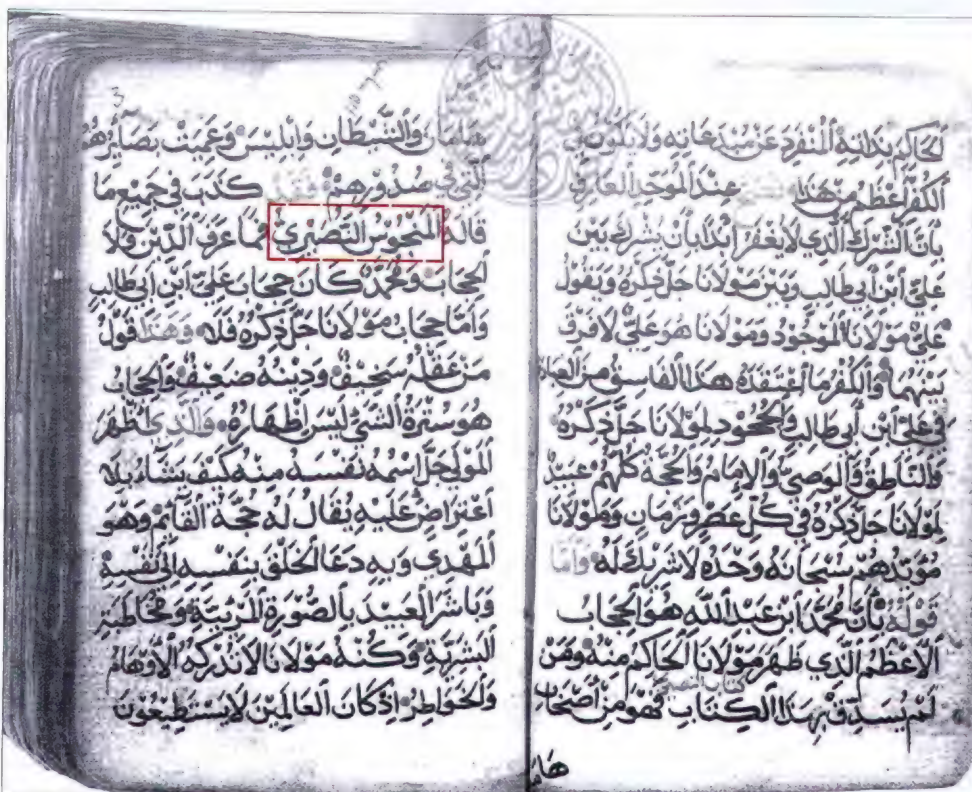 الحاكم بذاته المنفرد عن مبدعاته ولا يكون في
الكفر أعظم من هذا عند الموحد العارف
بان الشرك الذي لا يغفر ابدا بان يشرك بين
علي ابن ابي طالب وبين مولانا جل ذكره ويقول
علي مولانا الموجود ومولانا هو علي لا فرق
بينهما والكفر ما اعتقده هذا الفاسق من
في علي ابن ابي طالب والجحود لمولانا جل ذكره
والناطق والوصي والإمام والحجة كلهم عبيد
لمولانا جل ذكره في كل عصر وزمان ومولانا
مؤيدهم سبحانه وحده لا شريك له واما
قوله بان محمد ابن عبد الله هو الحجاب
الاعظم الذي ظهر مولانا الحاكم منه ومن
لم يسدق بهذا الكتاب فهو من أصحاب
هامـ
هامان والشيطان وابليس وعميت بصايرهم
التي في صدورهم فقد كذب في جميع ما
قاله المنجوس النصيري مما عرف الدين ولا
الحجاب ومحمد كان حجاب علي ابن ابي طالب
واما حجاب مولانا جل ذكره فلا وهذا قول
من عقله سخيف ودينه ضعيف والحجاب
هو سترة الشيء ليس إظهاره والذي اظهر
المولى جل اسمه نفسه منه كيف يشاء بلا
اعتراض عليه يقال له حجة القائم وهو
المهدي وبه دعا الخلق بنفسه الى نفسه
وباشر العبيد بالصورة المرئية ومخاطبة
البشرية وكنه مولانا لا تدركه الأوهام
والخواطر اذ كان العالمين لا يستطيعون